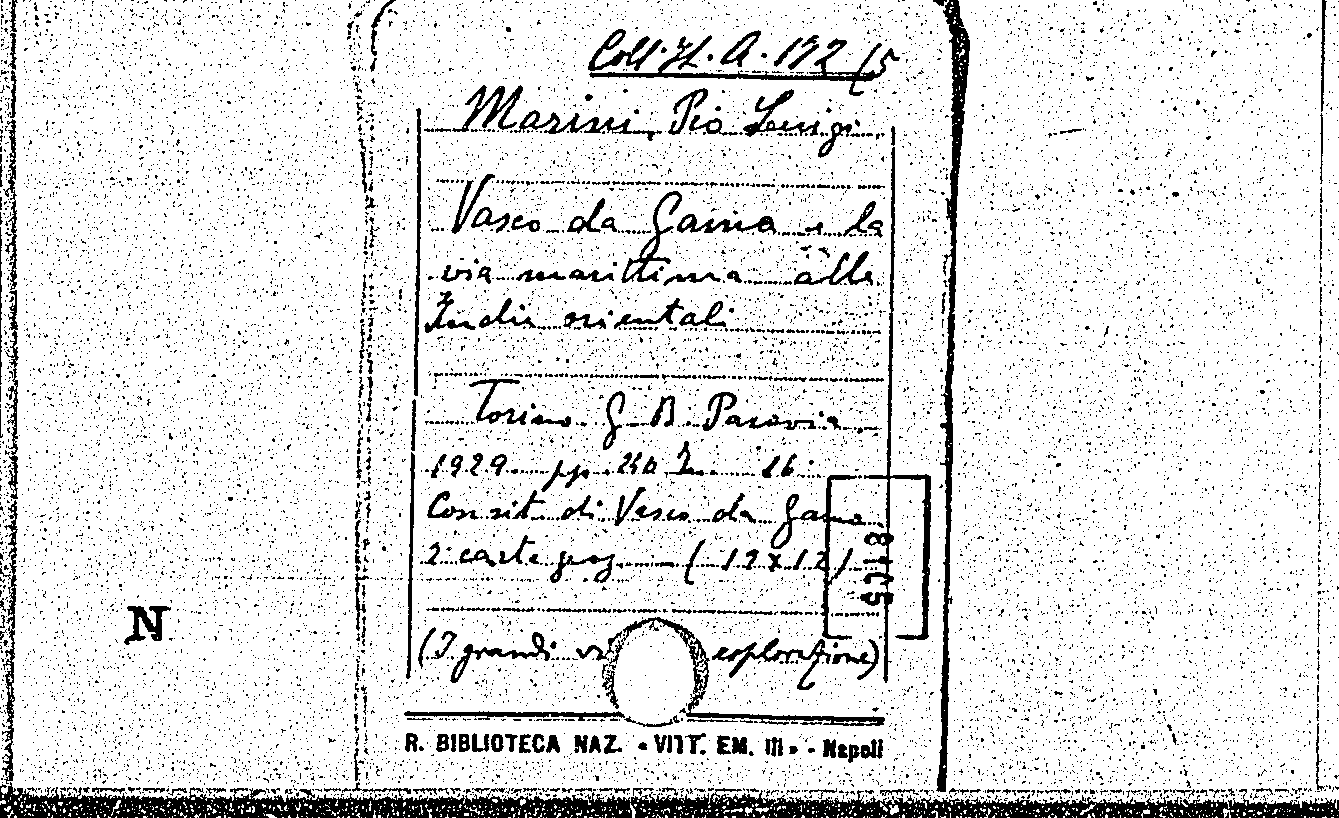 Coll. It. A. 192 /5
Marini, Pio Luigi
Vasco da Gama e la
via marittima alle
Indie orientali
Torino. G. B. Paravia.
1929. pp. 16.
Con rit. di Vasco da Gama
2 carte geog. (19x12)
8105
(I grandi esplorazione)
N
R. BIBLIOTECA NAZ. « VITT. EM. III » - Napoli